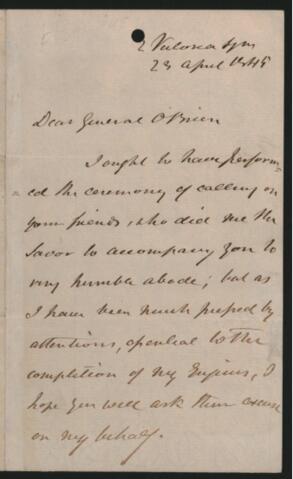 2 Victoria Sqre
23 April 1845
Dear General O'Brien
I ought to have perform
=ed the ceremony of calling on
your friends, who did me the
favor to accompany you to
my humble abode; but as
I have been much pressed by
attentions, to the
completion of my Engines, I
hope you will ask them excuse
on my behalf.